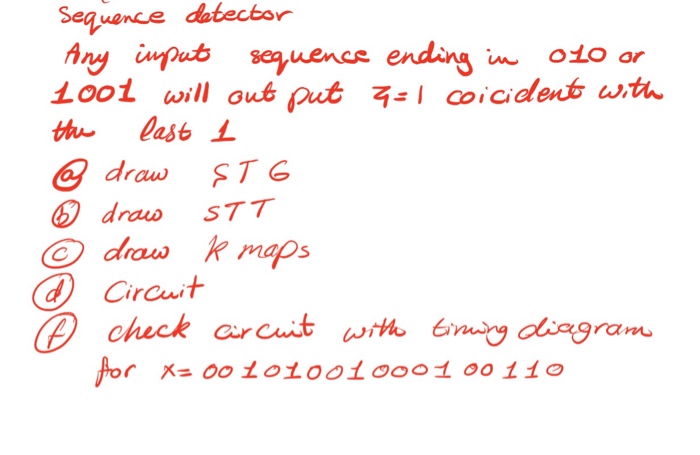 Sequence detector
Any input sequence ending in 010 or
1001 will out put z=1 coicident with
the last 1
a draw STG
b draw STT
c draw k maps
d Circuit
f check circuit with timing diagram
for x= 00101001000100110